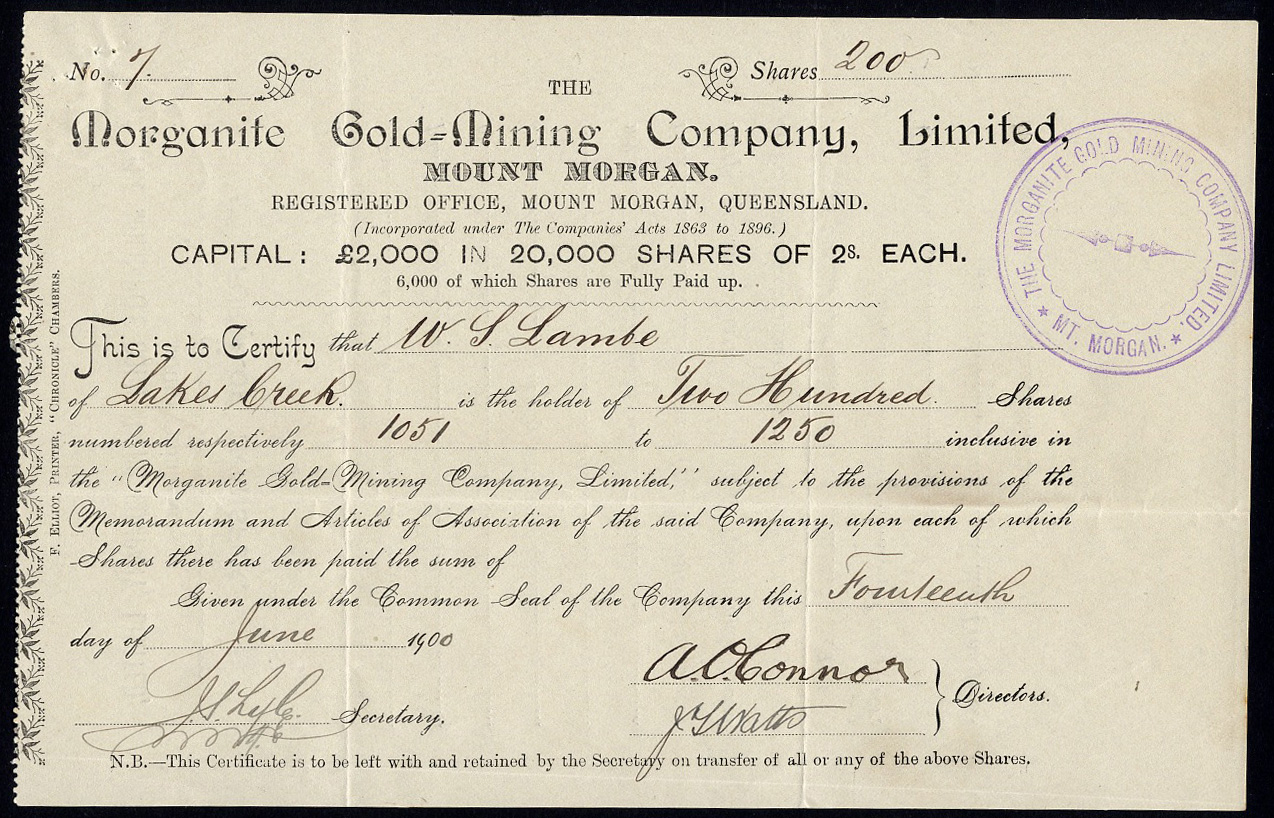 No. 7. Shares 200
THE
Morganite Gold=Mining Company, Limited,
MOUNT MORGAN.
REGISTERED OFFICE, MOUNT MORGAN, QUEENSLAND.
(Incorporated under The Companies' Acts 1863 to 1896.)
CAPITAL: £2,000 IN 20,000 SHARES OF 2s. EACH.
6,000 of which Shares are Fully Paid up.
THE MORGANITE GOLD MINING COMPANY LIMITED.
★ MT. MORGAN. ★
This is to Certify that W. S. Lambe
of Lakes Creek. is the holder of Two Hundred. Shares
numbered respectively 1051 to 1250 inclusive in
the "Morganite Gold=Mining Company, Limited," subject to the provisions of the
Memorandum and Articles of Association of the said Company, upon each of which
Shares there has been paid the sum of
Given under the Common Seal of the Company this Fourteenth
day of June 1900
A. O'Connor
J Watts
Directors.
Secretary.
N.B.—This Certificate is to be left with and retained by the Secretary on transfer of all or any of the above Shares.
F. ELLIOT, PRINTER, "CHRONICLE" CHAMBERS.